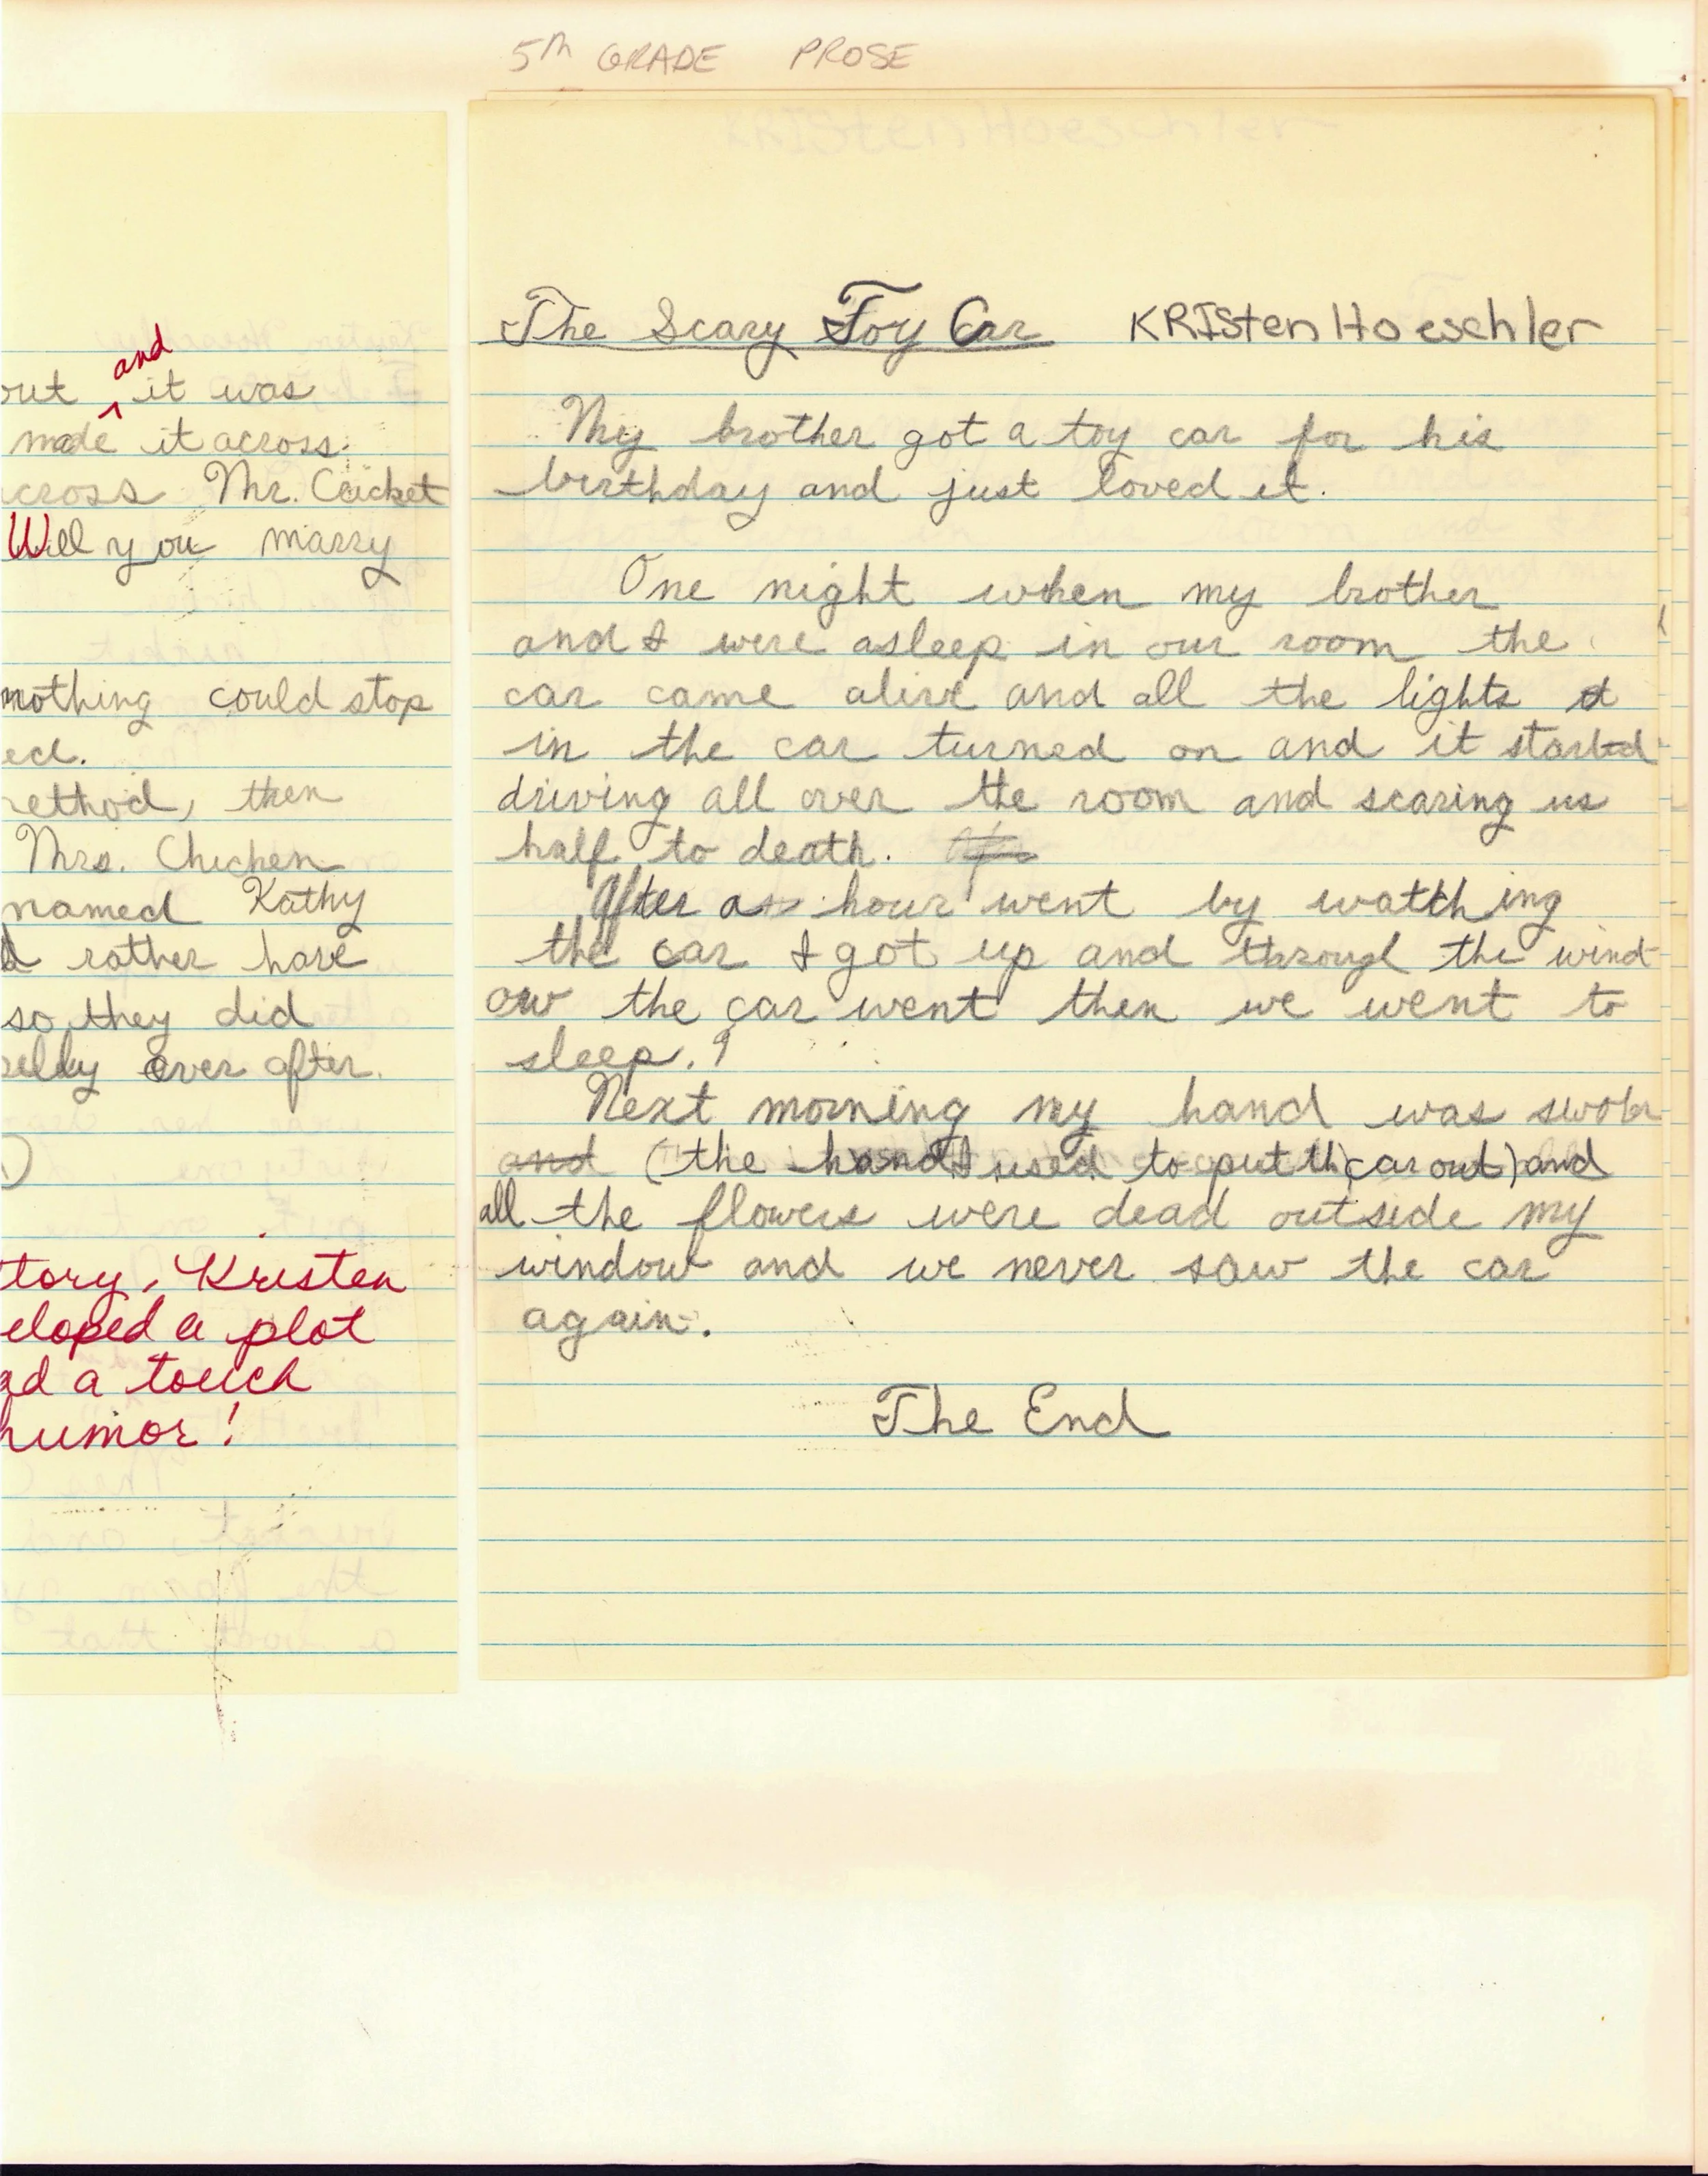 5th GRADE PROSE
and
out it was
made it across.
across Mr. Cricket
Will you marry
nothing could stop
ed.
ethod, then
Mrs. Chicken
named Kathy
rather have
so they did
ever after.
tory, Kristen
eloped a plot
ad a touch
humor!
The Scary Toy Car KRIsten Hoeschler
My brother got a toy car for his
birthday and just loved it.
One night when my brother
and I were asleep in our room the
car came alive and all the lights
in the car turned on and it started
driving all over the room and scaring us
half to death.
After a hour went by watching
the car I got up and through the wind
ow the car went then we went to
sleep.
Next morning my hand was swoln
and (the hand I used to put th car out) and
all the flowers were dead outside my
window and we never saw the car
again.
The End